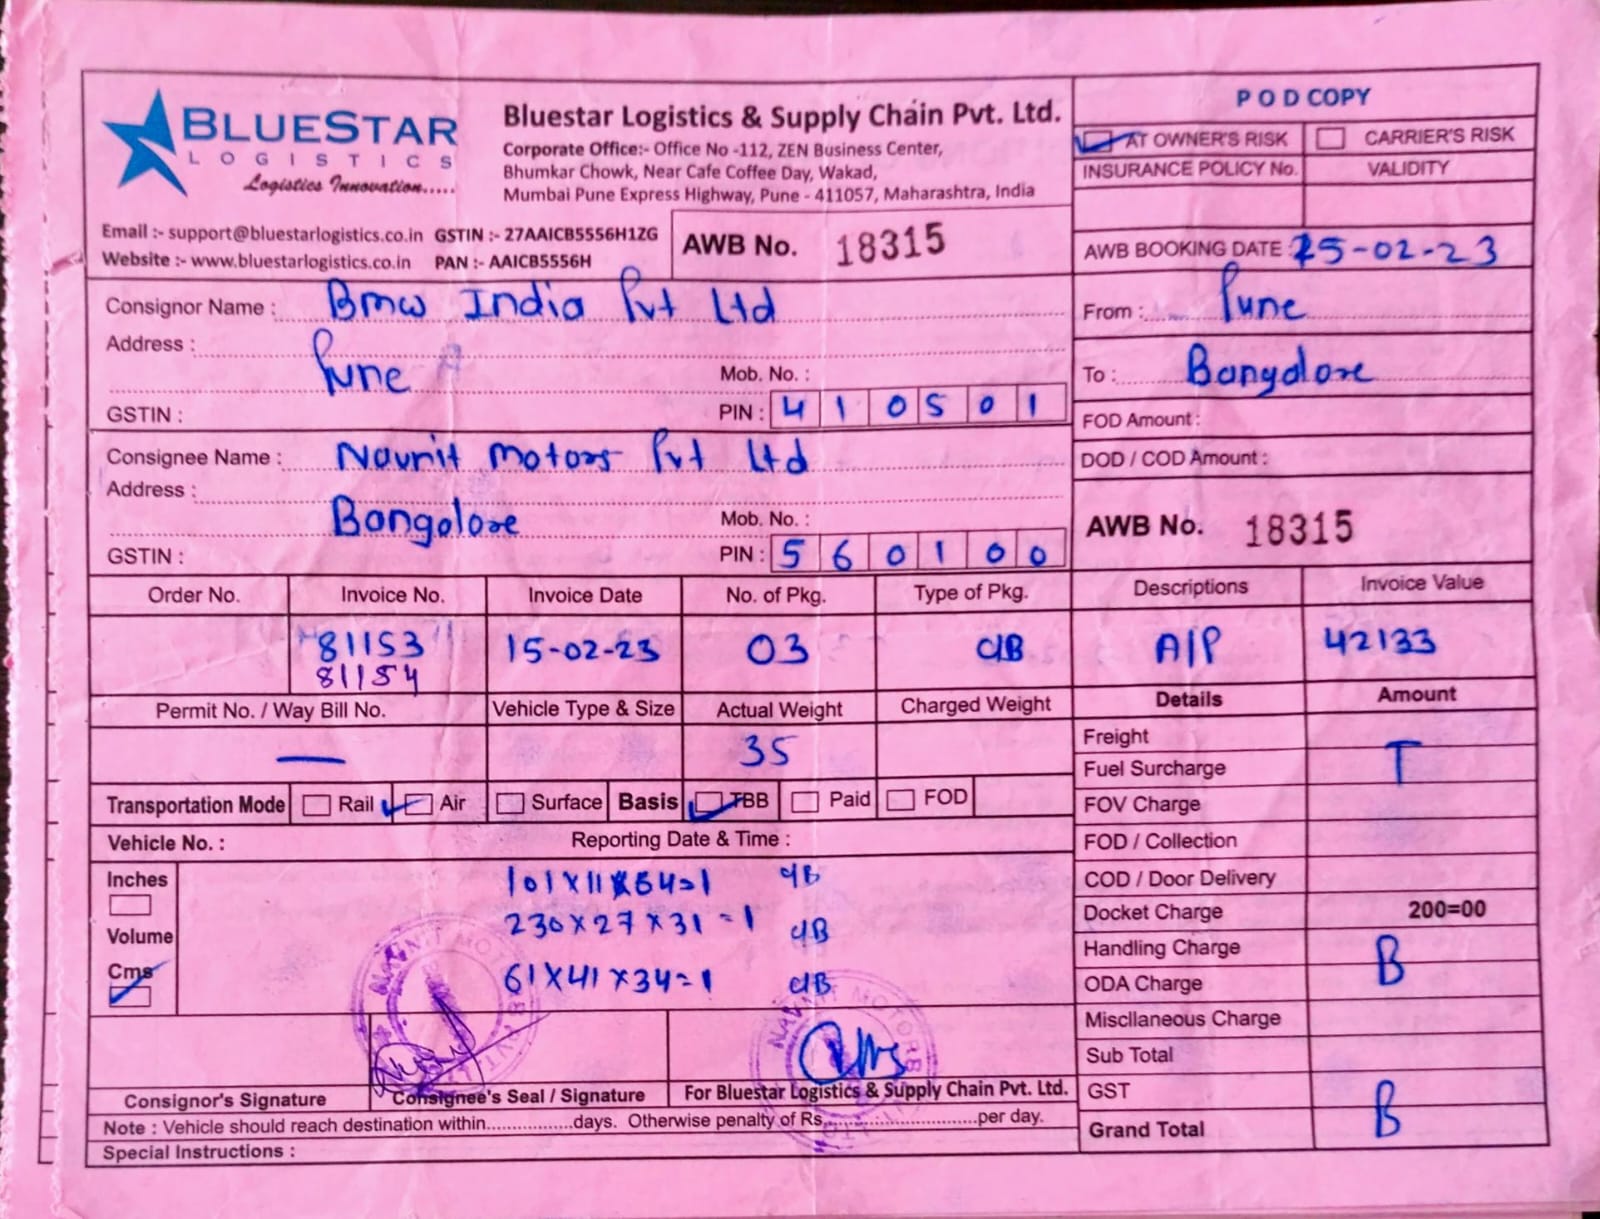 BLUESTAR
LOGISTICS
Logistics Innovation.....
Bluestar Logistics & Supply Chain Pvt. Ltd.
Corporate Office:- Office No -112, ZEN Business Center,
Bhumkar Chowk, Near Cafe Coffee Day, Wakad,
Mumbai Pune Express Highway, Pune - 411057, Maharashtra, India
Email :- support@bluestarlogistics.co.in GSTIN :- 27AAICB5556H1ZG
Website :- www.bluestarlogistics.co.in PAN :- AAICB5556H
AWB No. 18315
POD COPY
AT OWNER'S RISK CARRIER'S RISK
INSURANCE POLICY No. VALIDITY
AWB BOOKING DATE : 25-02-23
From : Pune
To : Bangalore
FOD Amount :
DOD / COD Amount :
AWB No. 18315
Consignor Name : Bmw India Pvt Ltd
Address :
Pune
Mob. No. :
GSTIN : PIN : 410501
Consignee Name : Navnit Motors Pvt Ltd
Address :
Bangalore
Mob. No. :
GSTIN : PIN : 560100
Order No. Invoice No. Invoice Date No. of Pkg. Type of Pkg. Descriptions Invoice Value
81153 15-02-23 03 CIB A/P 42133
81154
Permit No. / Way Bill No. Vehicle Type & Size Actual Weight Charged Weight
— 35
Transportation Mode Rail Air Surface Basis TBB Paid FOD
Vehicle No. : Reporting Date & Time :
Inches
Volume
Cms
101X11X64=1 CIB
230X27X31=1 CIB
61X41X34=1 CIB
Details Amount
Freight
T
Fuel Surcharge
FOV Charge
FOD / Collection
COD / Door Delivery
Docket Charge 200=00
Handling Charge
B
ODA Charge
Miscllaneous Charge
Sub Total
GST
B
Grand Total
Consignor's Signature Consignee's Seal / Signature For Bluestar Logistics & Supply Chain Pvt. Ltd.
Note : Vehicle should reach destination within.................days. Otherwise penalty of Rs..............................per day.
Special Instructions :